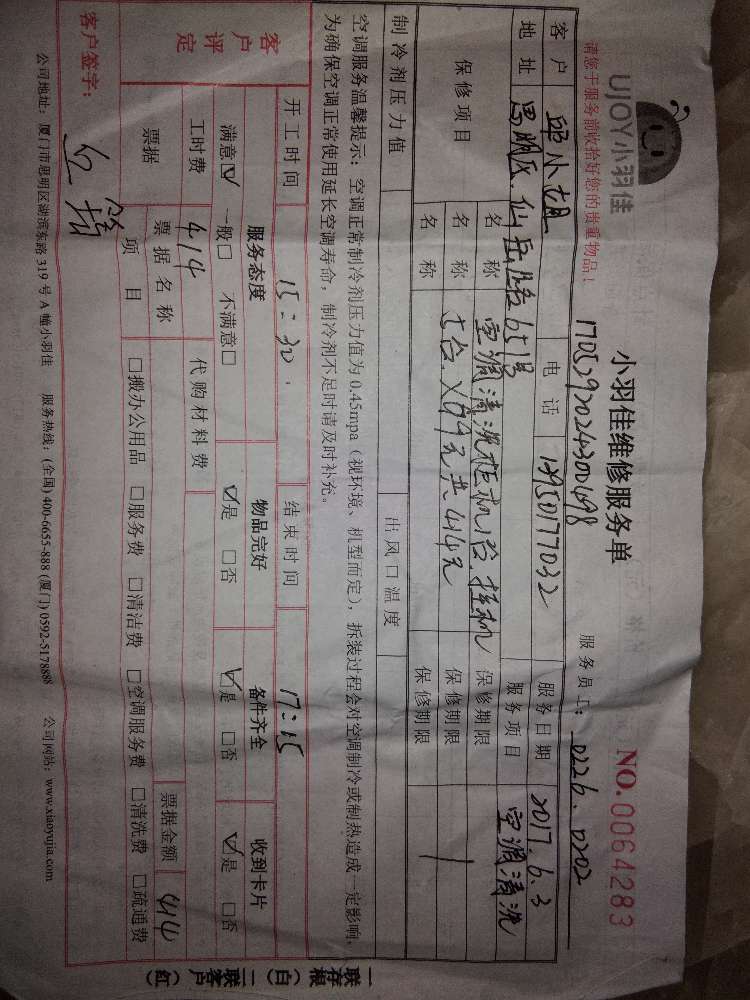 UJOY小羽佳
小羽佳维修服务单
NO.0064283
请您于服务前收拾好您的贵重物品!
服务员工: 0226. 0202
客户 邱小姐 电话 13950177032 服务日期 2017.6.3
地址 思明区.仙岳路651号 服务项目 空调清洗
保修项目 名称 空调清洗柜机 台.挂机 保修期限
名称 七台.X64元共.414元 保修期限
名称 保修期限
制冷剂压力值 出风口温度
空调服务温馨提示:空调正常制冷剂压力值为0.45mpa(视环境、机型而定),拆装过程会对空调制冷或制热造成一定影响,
为确保空调正常使用延长空调寿命,制冷剂不足时请及时补充。
开工时间 15:30. 结束时间 17:15
客户评定 服务态度 物品完好 备件齐全 收到卡片
满意☑ 一般□ 不满意□ ☑是 □否 ☑是 □否 ☑是 □否
工时费 414 代购材料费 票据金额 414
票据 票据名称
项目 □搬办公用品 □服务费 □清洁费 □空调服务费 □清洗费 □疏通费
客户签字:
公司地址:厦门市思明区湖滨东路319号A幢小羽佳 服务热线:(全国)400-6655-888 (厦门)0592-5178888 公司网站:www.xiaoyujia.com
一联存根(白) 二联客户(红)